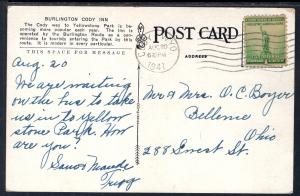 BURLINGTON CODY INN
The Cody way to Yellowstone Park is be-
coming more popular each year. The Inn is
operated by the Burlington Route as a con-
venience to tourists entering the Park by this
route. It is modern in every particular.
THIS SPACE FOR MESSAGE
POST CARD
ADDRESS
AUG 20
6 PM
1941
Aug. 20
We are waiting
on the bus to take
us in to Yellow
stone Park. How
are you?
Maude
Mr & Mrs. O. C. Boyer
Bellevue
Ohio
288 St.